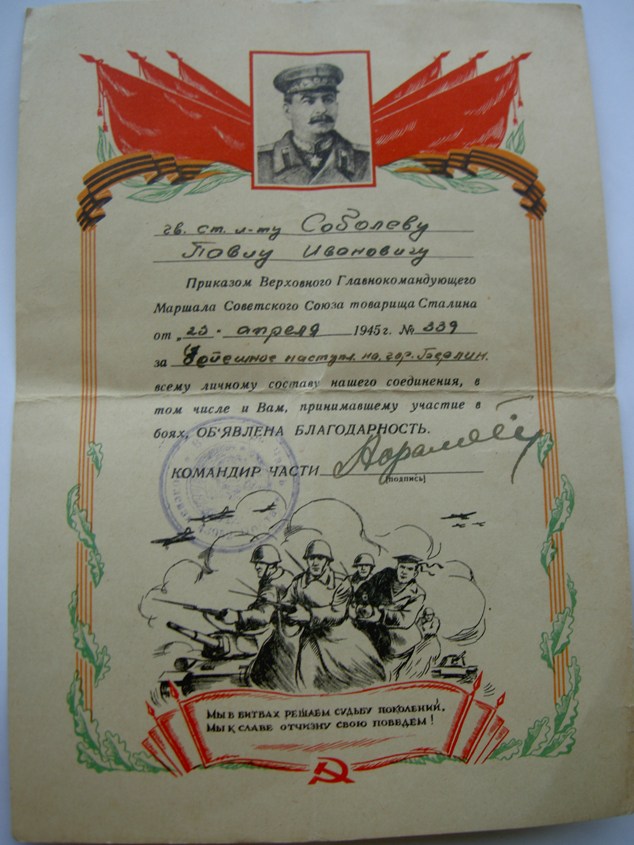 гв. ст. л-ту Соболеву
Павлу Ивановичу
Приказом Верховного Главнокомандующего
Маршала Советского Союза товарища Сталина
от „23 - апреля 1945 г. № 339
за успешное наступл. на гор. Берлин.
всему личному составу нашего соединения, в
том числе и Вам, принимавшему участие в
боях, ОБ'ЯВЛЕНА БЛАГОДАРНОСТЬ.
КОМАНДИР ЧАСТИ
[подпись]
МЫ В БИТВАХ РЕШАЕМ СУДЬБУ ПОКОЛЕНИЙ.
МЫ К СЛАВЕ ОТЧИЗНУ СВОЮ ПОВЕДЁМ!